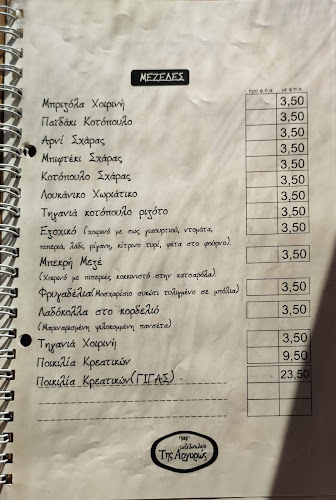 ΜΕΖΕΔΕΣ
προ φ.π.α με φ.π.α
Μπριζόλα Χοιρινή 3,50
Παϊδάκι Κοτόπουλο 3,50
Αρνί Σχάρας 3,50
Μπιφτέκι Σχάρας 3,50
Κοτόπουλο Σχάρας 3,50
Λουκάνικο Χωριάτικο 3,50
Τηγανιά κοτόπουλο ριζότο 3,50
Εξοχικό (χοιρινό με σως γιαουρτιού, ντομάτα, 3,50
πιπεριά, λάδι, ρίγανη, κίτρινο τυρί, φέτα στο φούρνο).
Μπεκρή Μεζέ 3,50
(Χοιρινό με πιπεριές κοκκινιστό στην κατσαρόλα)
Φρυγαδέλια (Μοσχαρίσιο συκώτι τυλιγμένο σε μπόλια) 3,50
Λαδόκολλα στο κορδελιό 3,50
(Μαριναρισμένη ψιλοκομμένη πανσέτα)
Τηγανιά Χοιρινή 3,50
Ποικιλία Κρεατικών 9,50
Ποικιλία Κρεατικών (ΓΙΓΑΣ) 23,50
μεζεδοπωλείο
Της Αργυρώς